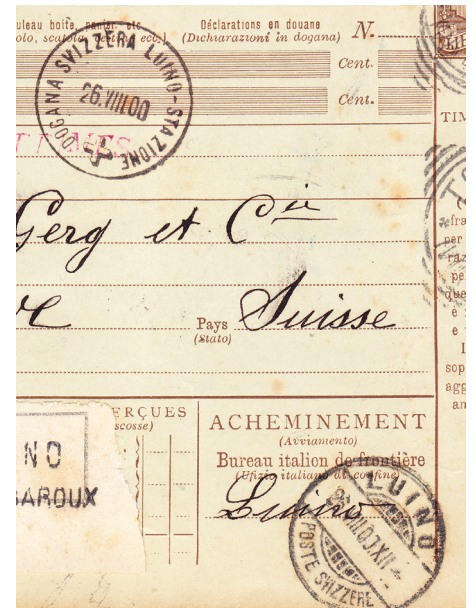 uleau boite, panier, etc.
olo, scatola, cestino ecc.)
Déclarations en douane
(Dichiarazioni in dogana)
N.
Cent.
Cent.
DOGANA SVIZZERA LUINO-STAZIONE
26.VIII.00
TIM
Gerg et Cie
fra
per
raz
pe
que
e
e
I
sop
agg
an
Pays
(Stato)
Suisse
ERÇUES
scosse)
NO
BAROUX
ACHEMINEMENT
(Avviamento)
Bureau italien de frontière
(Ufizio italiano di confine)
Luino
LUINO
POSTE SVIZZERE